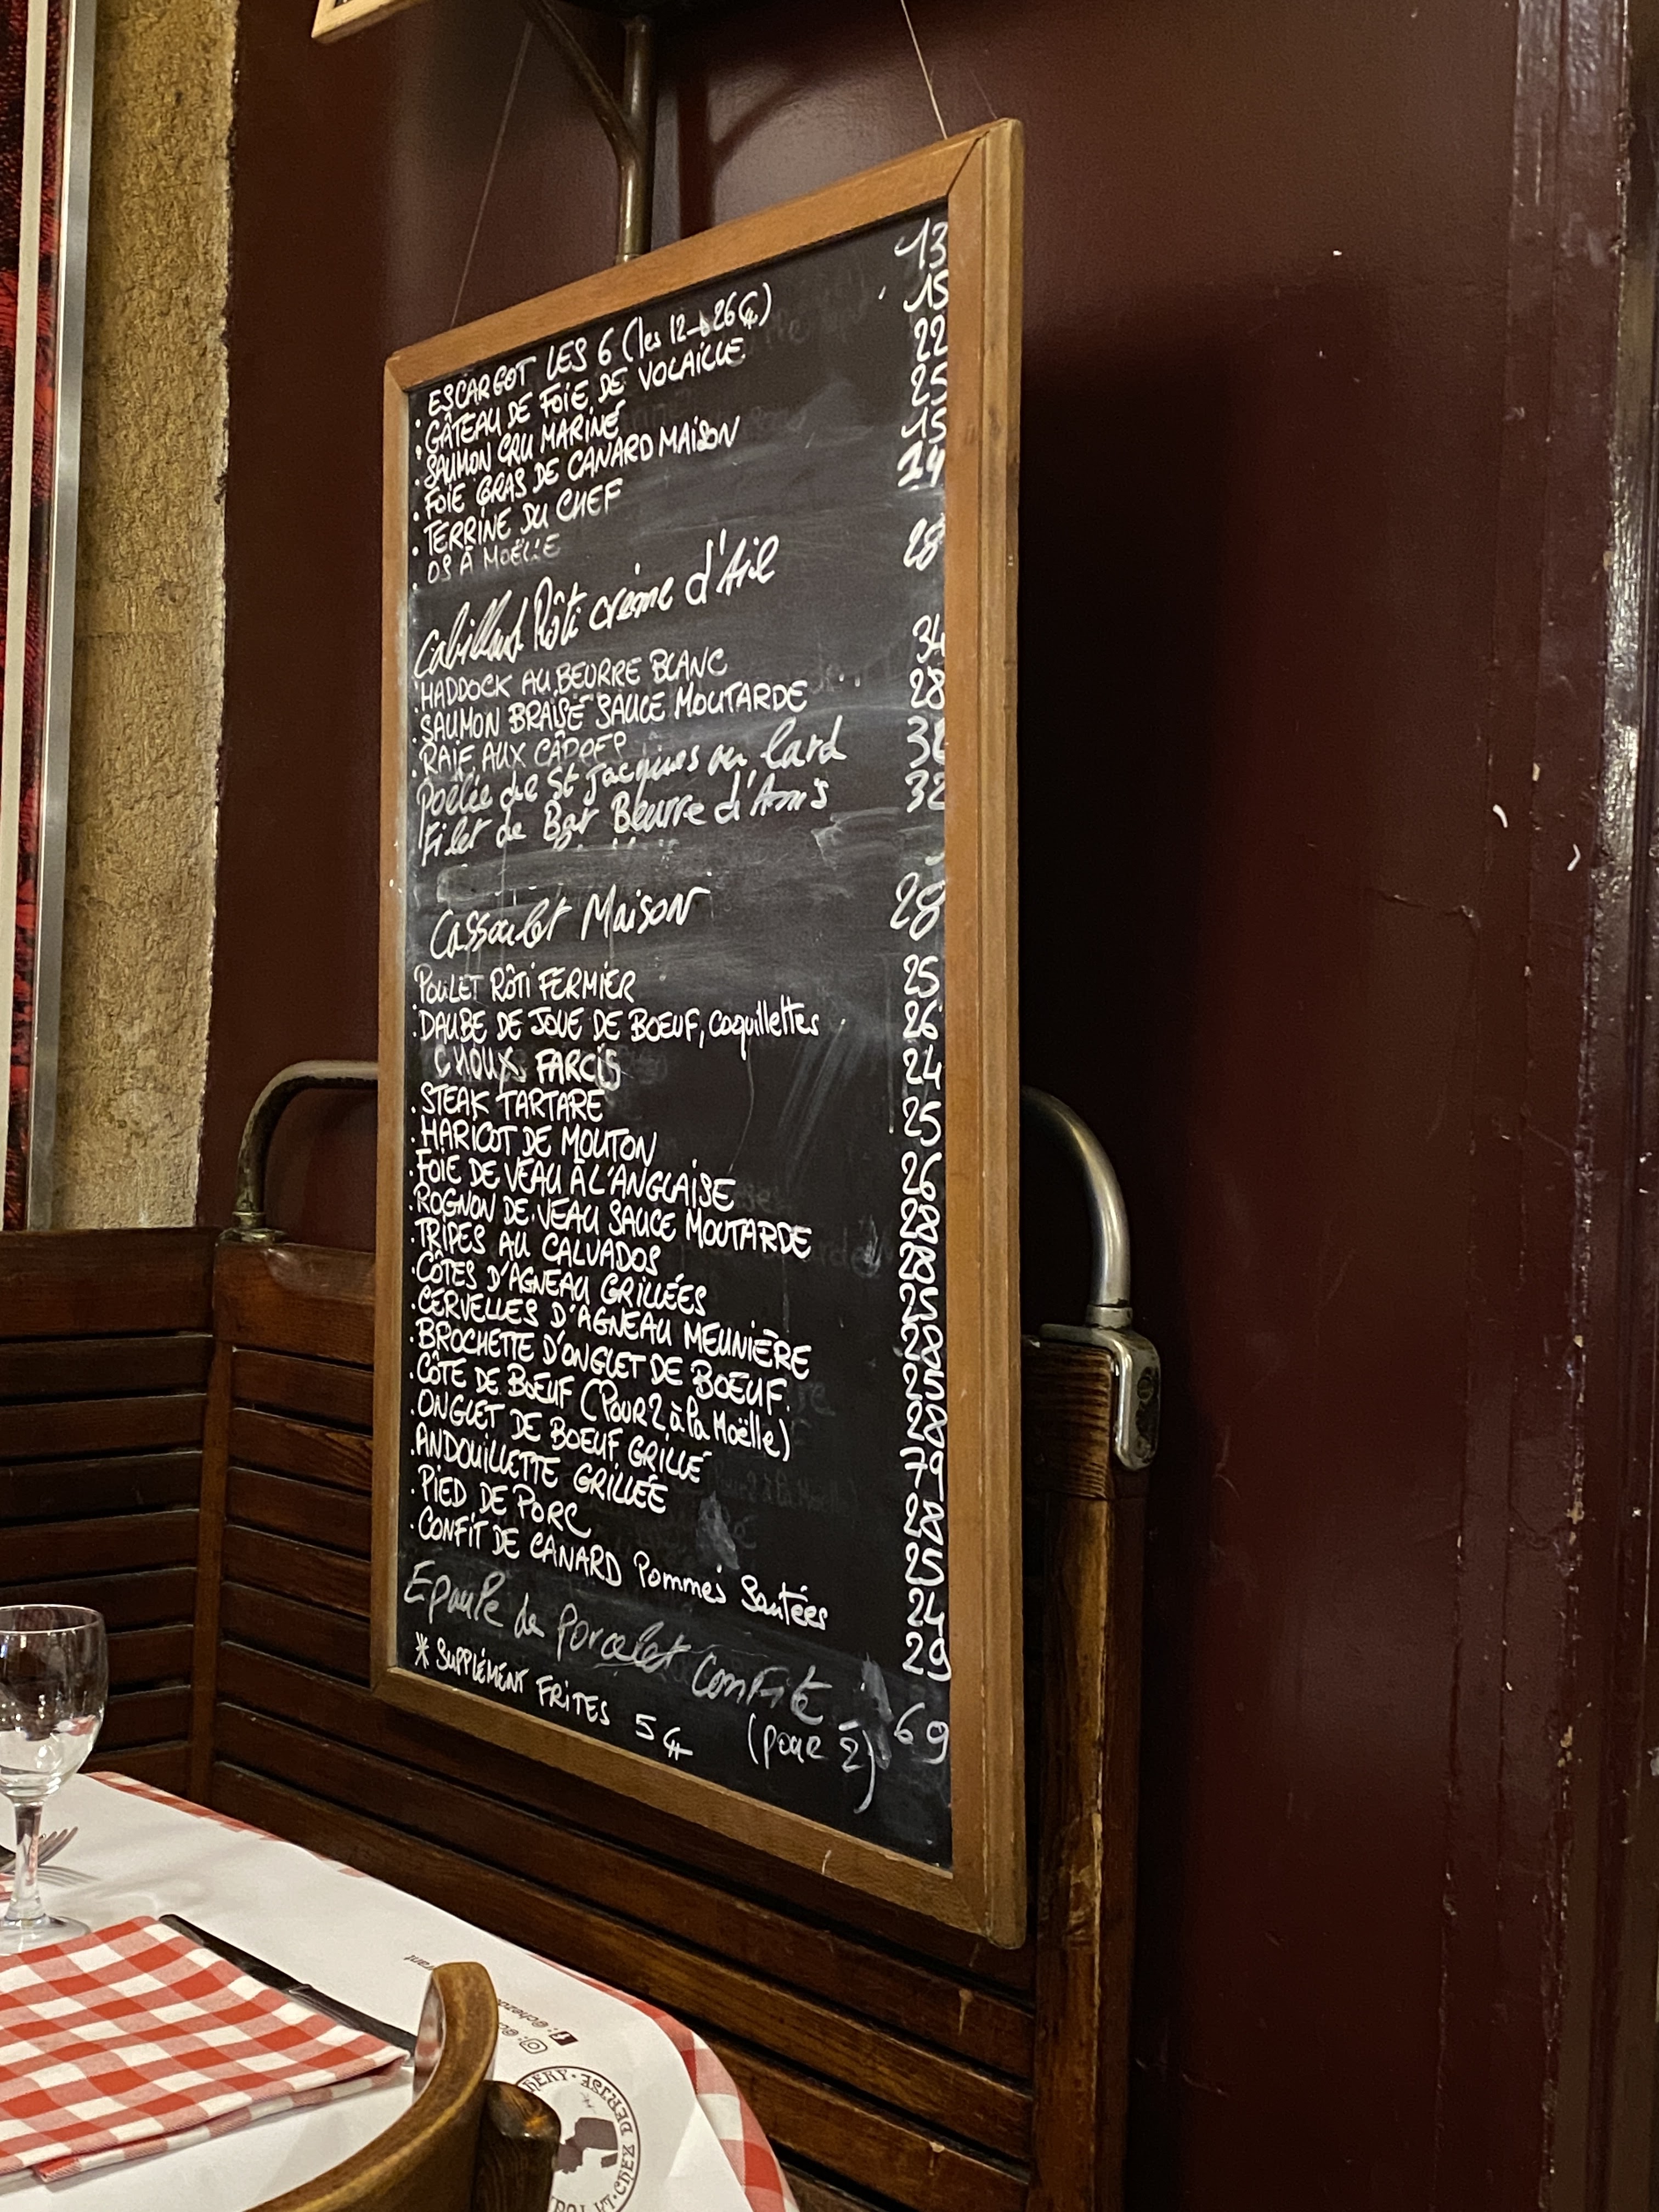 ESCARGOT LES 6 (les 12→26€) 13
. GÂTEAU DE FOIE DE VOLAILLE 15
. SAUMON CRU MARINÉ 22
. FOIE GRAS DE CANARD MAISON 25
. TERRINE DU CHEF 15
. OS À MOËLLE 14
Cabillaud Rôti crème d'Ail 28
. HADDOCK AU BEURRE BLANC 34
. SAUMON BRAISÉ SAUCE MOUTARDE 28
. RAIE AUX CÂPRES
Poêlée de St Jacques au lard
Filet de Bar Beurre d'Anis 32
Cassoulet Maison 28
. POULET RÔTI FERMIER 25
. DAUBE DE JOUE DE BOEUF, coquillettes 26
CHOUX FARCIS 24
. STEAK TARTARE 25
. HARICOT DE MOUTON 26
. FOIE DE VEAU À L'ANGLAISE 28
. ROGNON DE VEAU SAUCE MOUTARDE 28
. TRIPES AU CALVADOS 25
. CÔTES D'AGNEAU GRILLÉES 28
. CERVELLES D'AGNEAU MEUNIÈRE 25
. BROCHETTE D'ONGLET DE BOEUF. 28
. CÔTE DE BOEUF (POUR 2 à la Moëlle) 79
. ONGLET DE BOEUF GRILLÉ 28
. ANDOUILLETTE GRILLÉE 25
. PIED DE PORC 24
. CONFIT DE CANARD Pommes Sautées 29
Epaule de Porcelet Confite 69
(pour 2)
* SUPPLÉMENT FRITES 5€
CHEZ DENISE